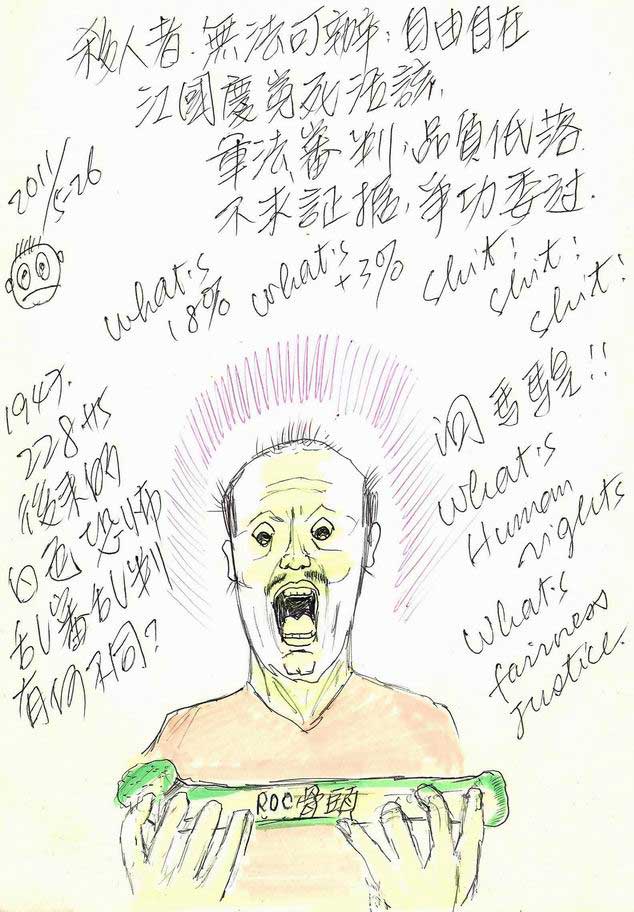 殺人者.無法可辦:自由自在
江國慶冤死活該.
軍法審判,品質低落.
不求証据,爭功委过.
2011/5-26
what's
18%
what's
+3%
shit!
shit!
shit!
1947.
228
後來的
白色恐怖
乱審乱判
有何不同?
问馬騜!!
what's
Human
rights
what's
fairness
justice.
ROC骨頭